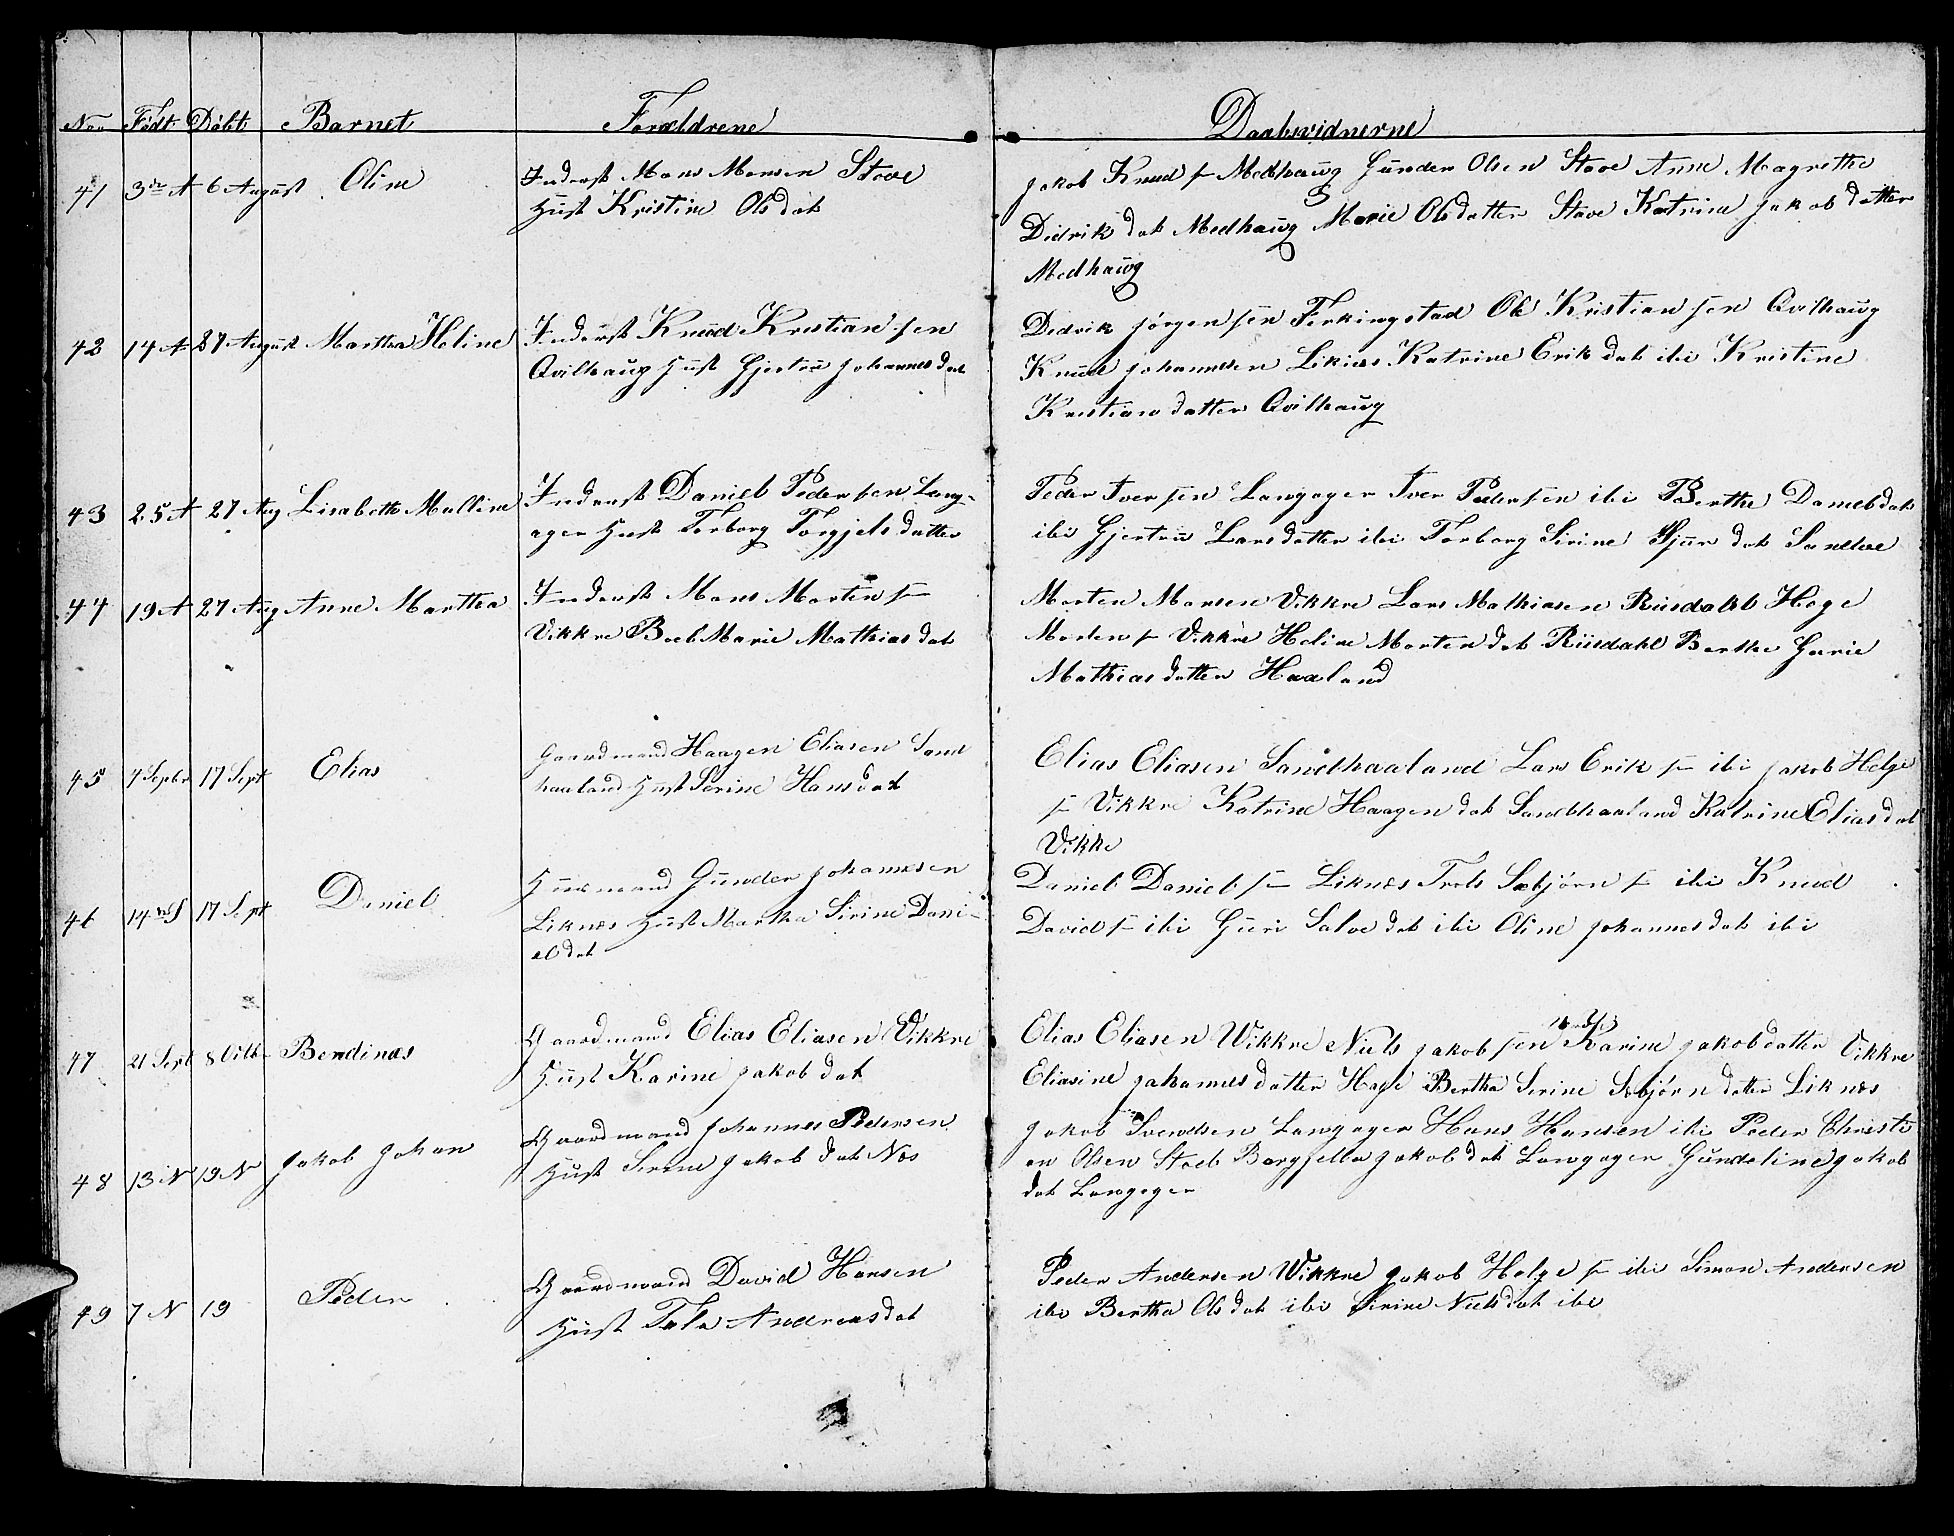 No Født Døbt Barnet Forældrene Daabsvidnerne
41 3die A 6 August Oline Inderst Mons Monsen Stave
Hust Kristine Olsdat
Jakob Knud s– Medhaug Gunder Olsen Stave Anne Magrethe
Didrik dat Medhaug Marie Olsdatter Stave Katrina Jakobdatter
Medhaug
42 14 A 27 August Martha Heline Inderst Knud Kristiansen
Qvilhaug Hust Gjertru Johannesdat
Didrik Jørgensen Ferkingstad Ole Kristiansen Qvilhaug
Knud Johannesen Liknes Katrine Erikdat ibi Kristine
Kristiandatter Qvilhaug
43 25 A 27 Aug Lisabeth Malline Inderst Daniel Pedersen Lang-
ager Hust Torborg Torgjelsdatter
Peder Iversen Langager Iver Pedersen ibi Berthe Danieldat
ibi Gjertru Larsdatter ibi Torborg Sirine Sjurdat Sandve
44 19 A 27 Aug Anne Martha Inderst Mons Morten s–
Vikkre Boel Marie Mathiasdat
Morten Monsen Vikkre Lars Mathiasen Risdahl Hoge
Morten s– Vikkre Heline Mortendat Riisdahl Berthe Gurie
Mathiasdatter Haaland
45 7 Septbr 17 Sept Elias Gaardmand Haagen Eliasen Sand
haaland Hust Serine Hansdat
Elias Eliasen Sandhaaland Lars Erik s– ibi Jakob Helge
s– Vikkre Katrine Haagendat Sandhaaland Katrine Eliasdat
Vikke
46 14de S 17 Sept Daniel Huusmand Gunder Johannesen
Liknes Hust Martha Sirine Dani-
eldat
Daniel Daniel s– Liknes Trols Sæbjørn s– ibi Knud
David s– ibi Guri Salvedat ibi Oline Johannesdat ibi
47 21 Sept 8 Octb Bendines Gaardmand Elias Eliasen Vikkre
Hust Karine Jakobdat
Elias Eliasen Wikkre Niels Jakobsen Karine Jakobdatter Vikkre
Eliasine Johannesdatter Hage Bertha Serine Sæbjørndatter Liknes
48 13 N 19 N Jakob Johan Gaardmand Johannes Pedersen
Hust Serine Jakobdat Nes
Jakob Svendsen Langager Hans Hansen ibi Peder Christi
an Olsen Stoel Borgjella Jakobdat Langager Gundeline Jakob
dat Langager
49 7 N 19 Peder Gaardmand David Hansen
Hust Tala Andreasdat
Peder Andersen Wikkre Jakob Helge s– ibi Simon Andersen
ibi Bertha Olsdat ibi Sirine Nielsdat ibi